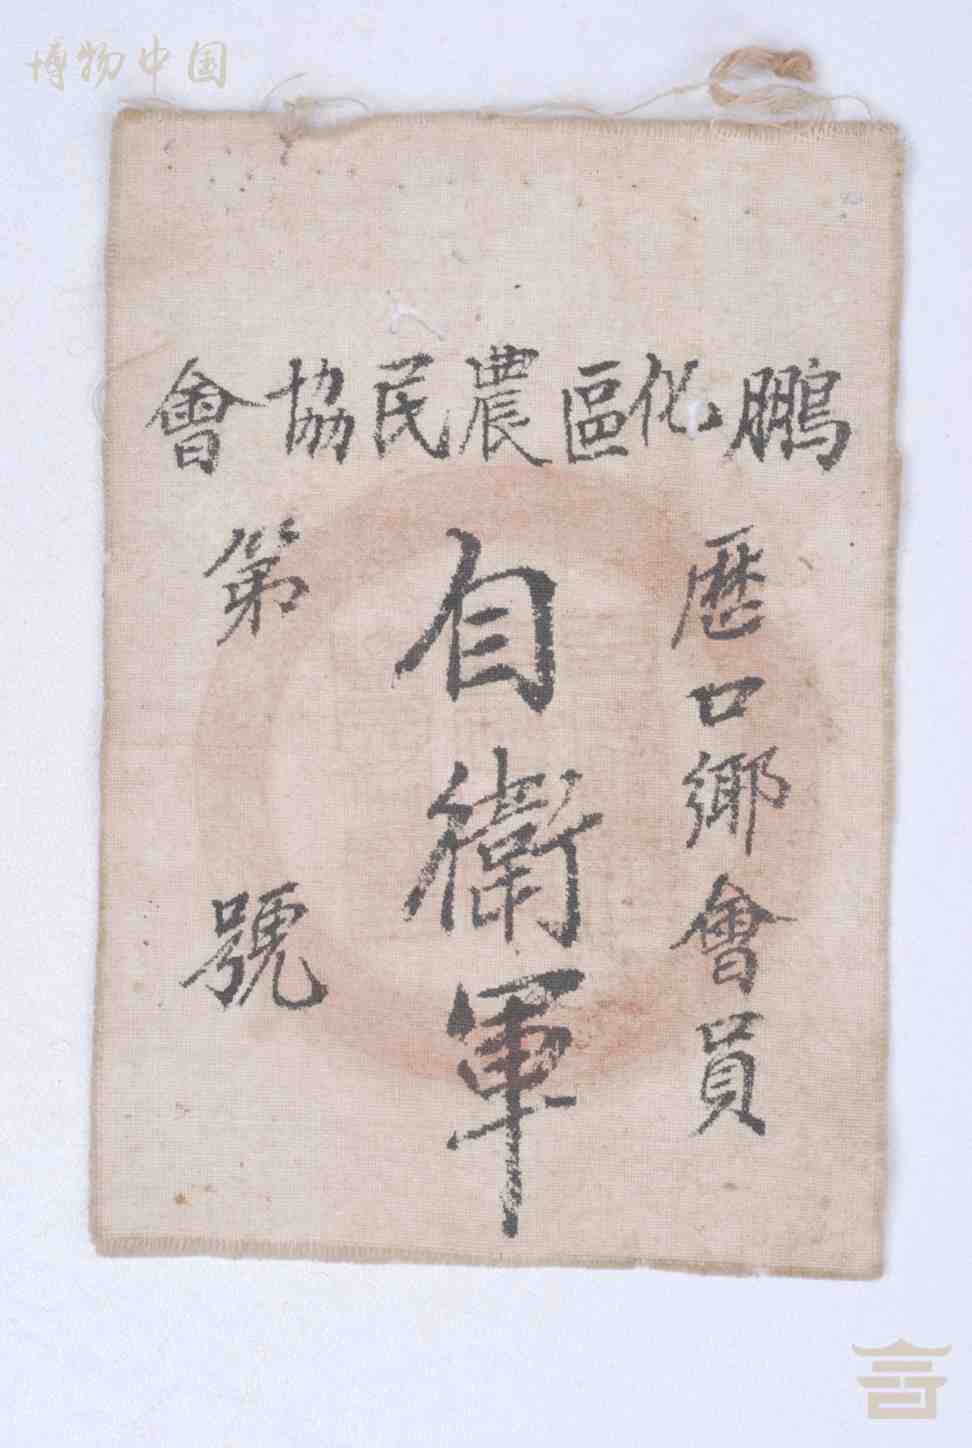 博物中国
鵬化區農民協會
歷口鄉會員
自衛軍
第 號